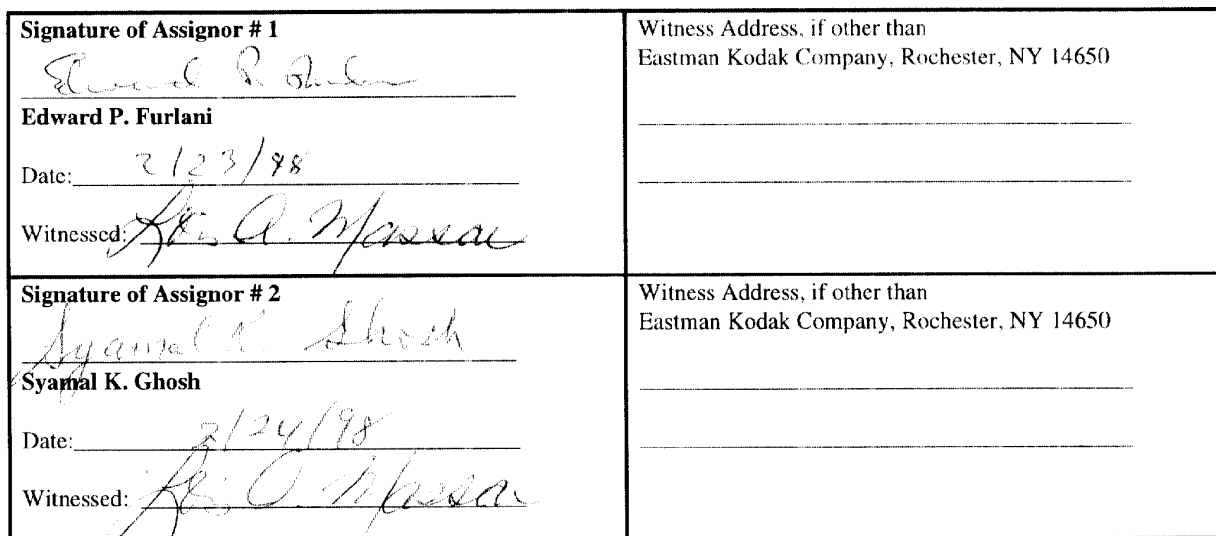 Signature of Assignor # 1
Edward P. Furlani
Date: 2/23/98
Witnessed: A. Massar
Witness Address, if other than
Eastman Kodak Company, Rochester, NY 14650
Signature of Assignor # 2
Syamal K. Ghosh
Syamal K. Ghosh
Date: 2/24/98
Witnessed: A. Massar
Witness Address, if other than
Eastman Kodak Company, Rochester, NY 14650